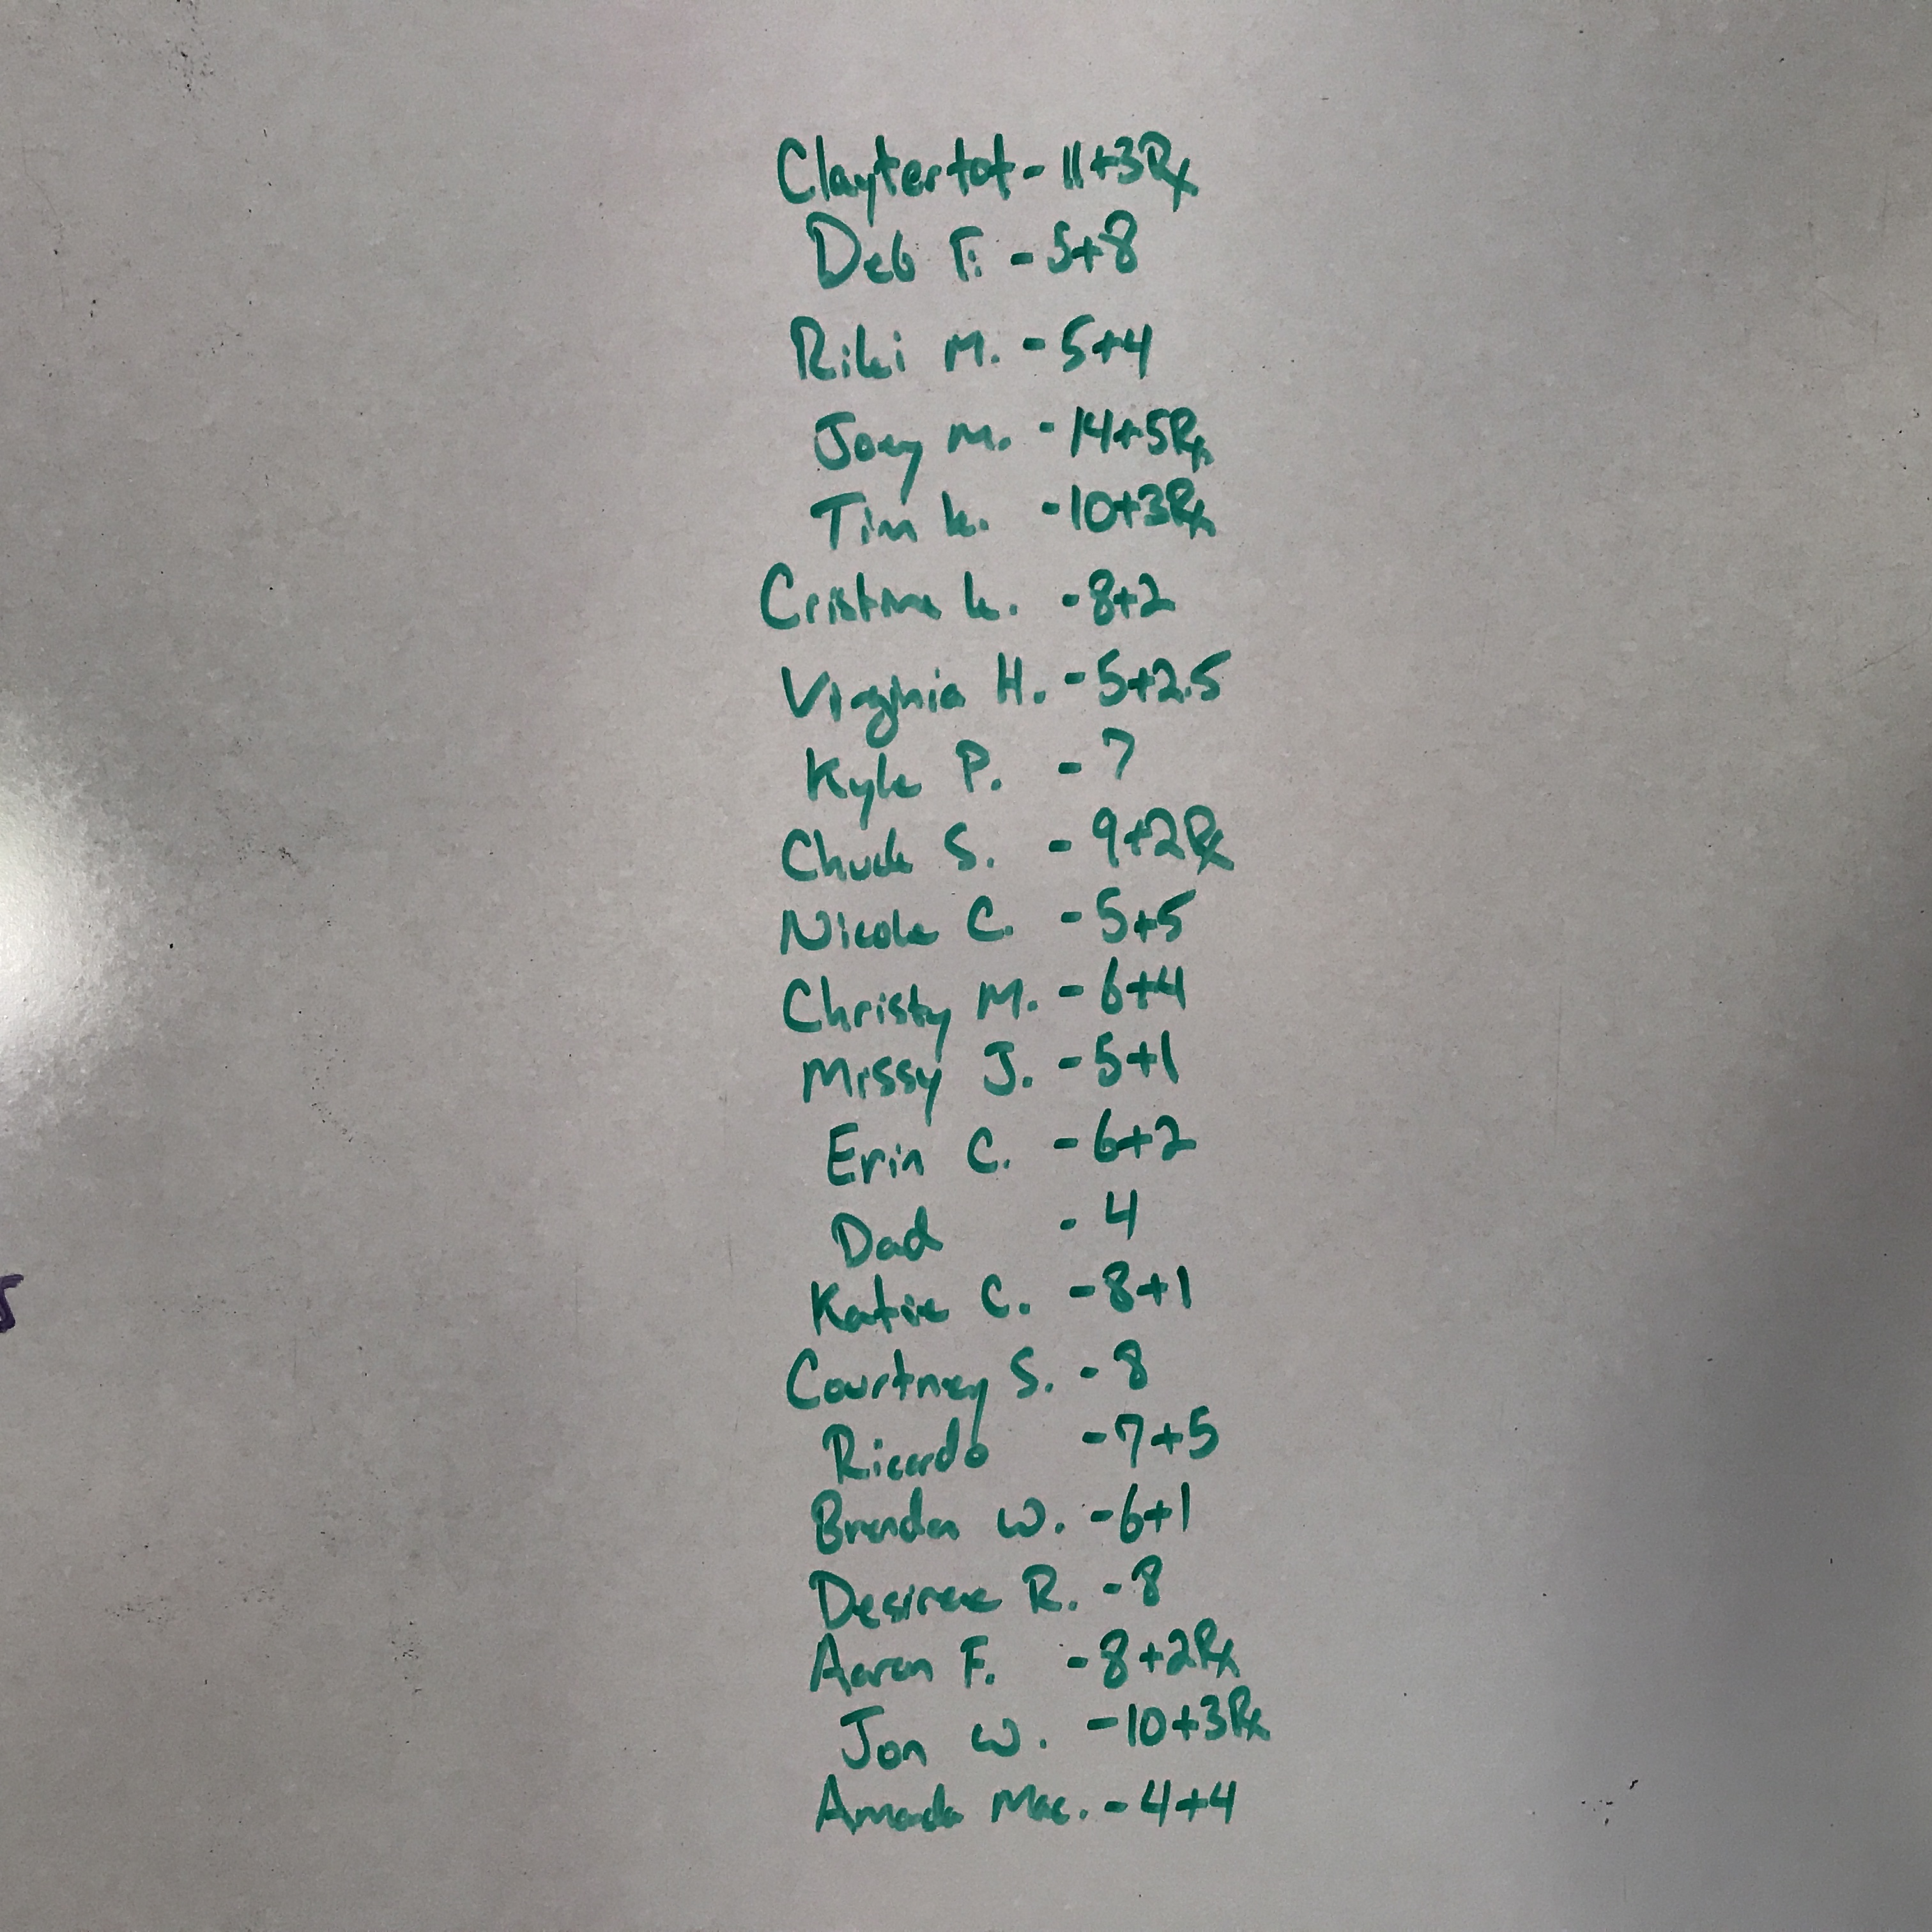 Claytertot - 11+3Rx
Deb F. - 5+8
Riki M. - 5+4
Joey M. - 14+5Rx
Tim K. - 10+3Rx
Cristina K. - 8+2
Virginia H. - 5+2.5
Kyle P. - 7
Chuck S. - 9+2Rx
Nicole C. - 5+5
Christy M. - 6+4
Missy J. - 5+1
Erin C. - 6+2
Dad - 4
Katie C. - 8+1
Courtney S. - 8
Ricardo - 7+5
Brendan W. - 6+1
Desiree R. - 8
Aaron F. - 8+2Rx
Jon W. - 10+3Rx
Amanda Mac. - 4+4